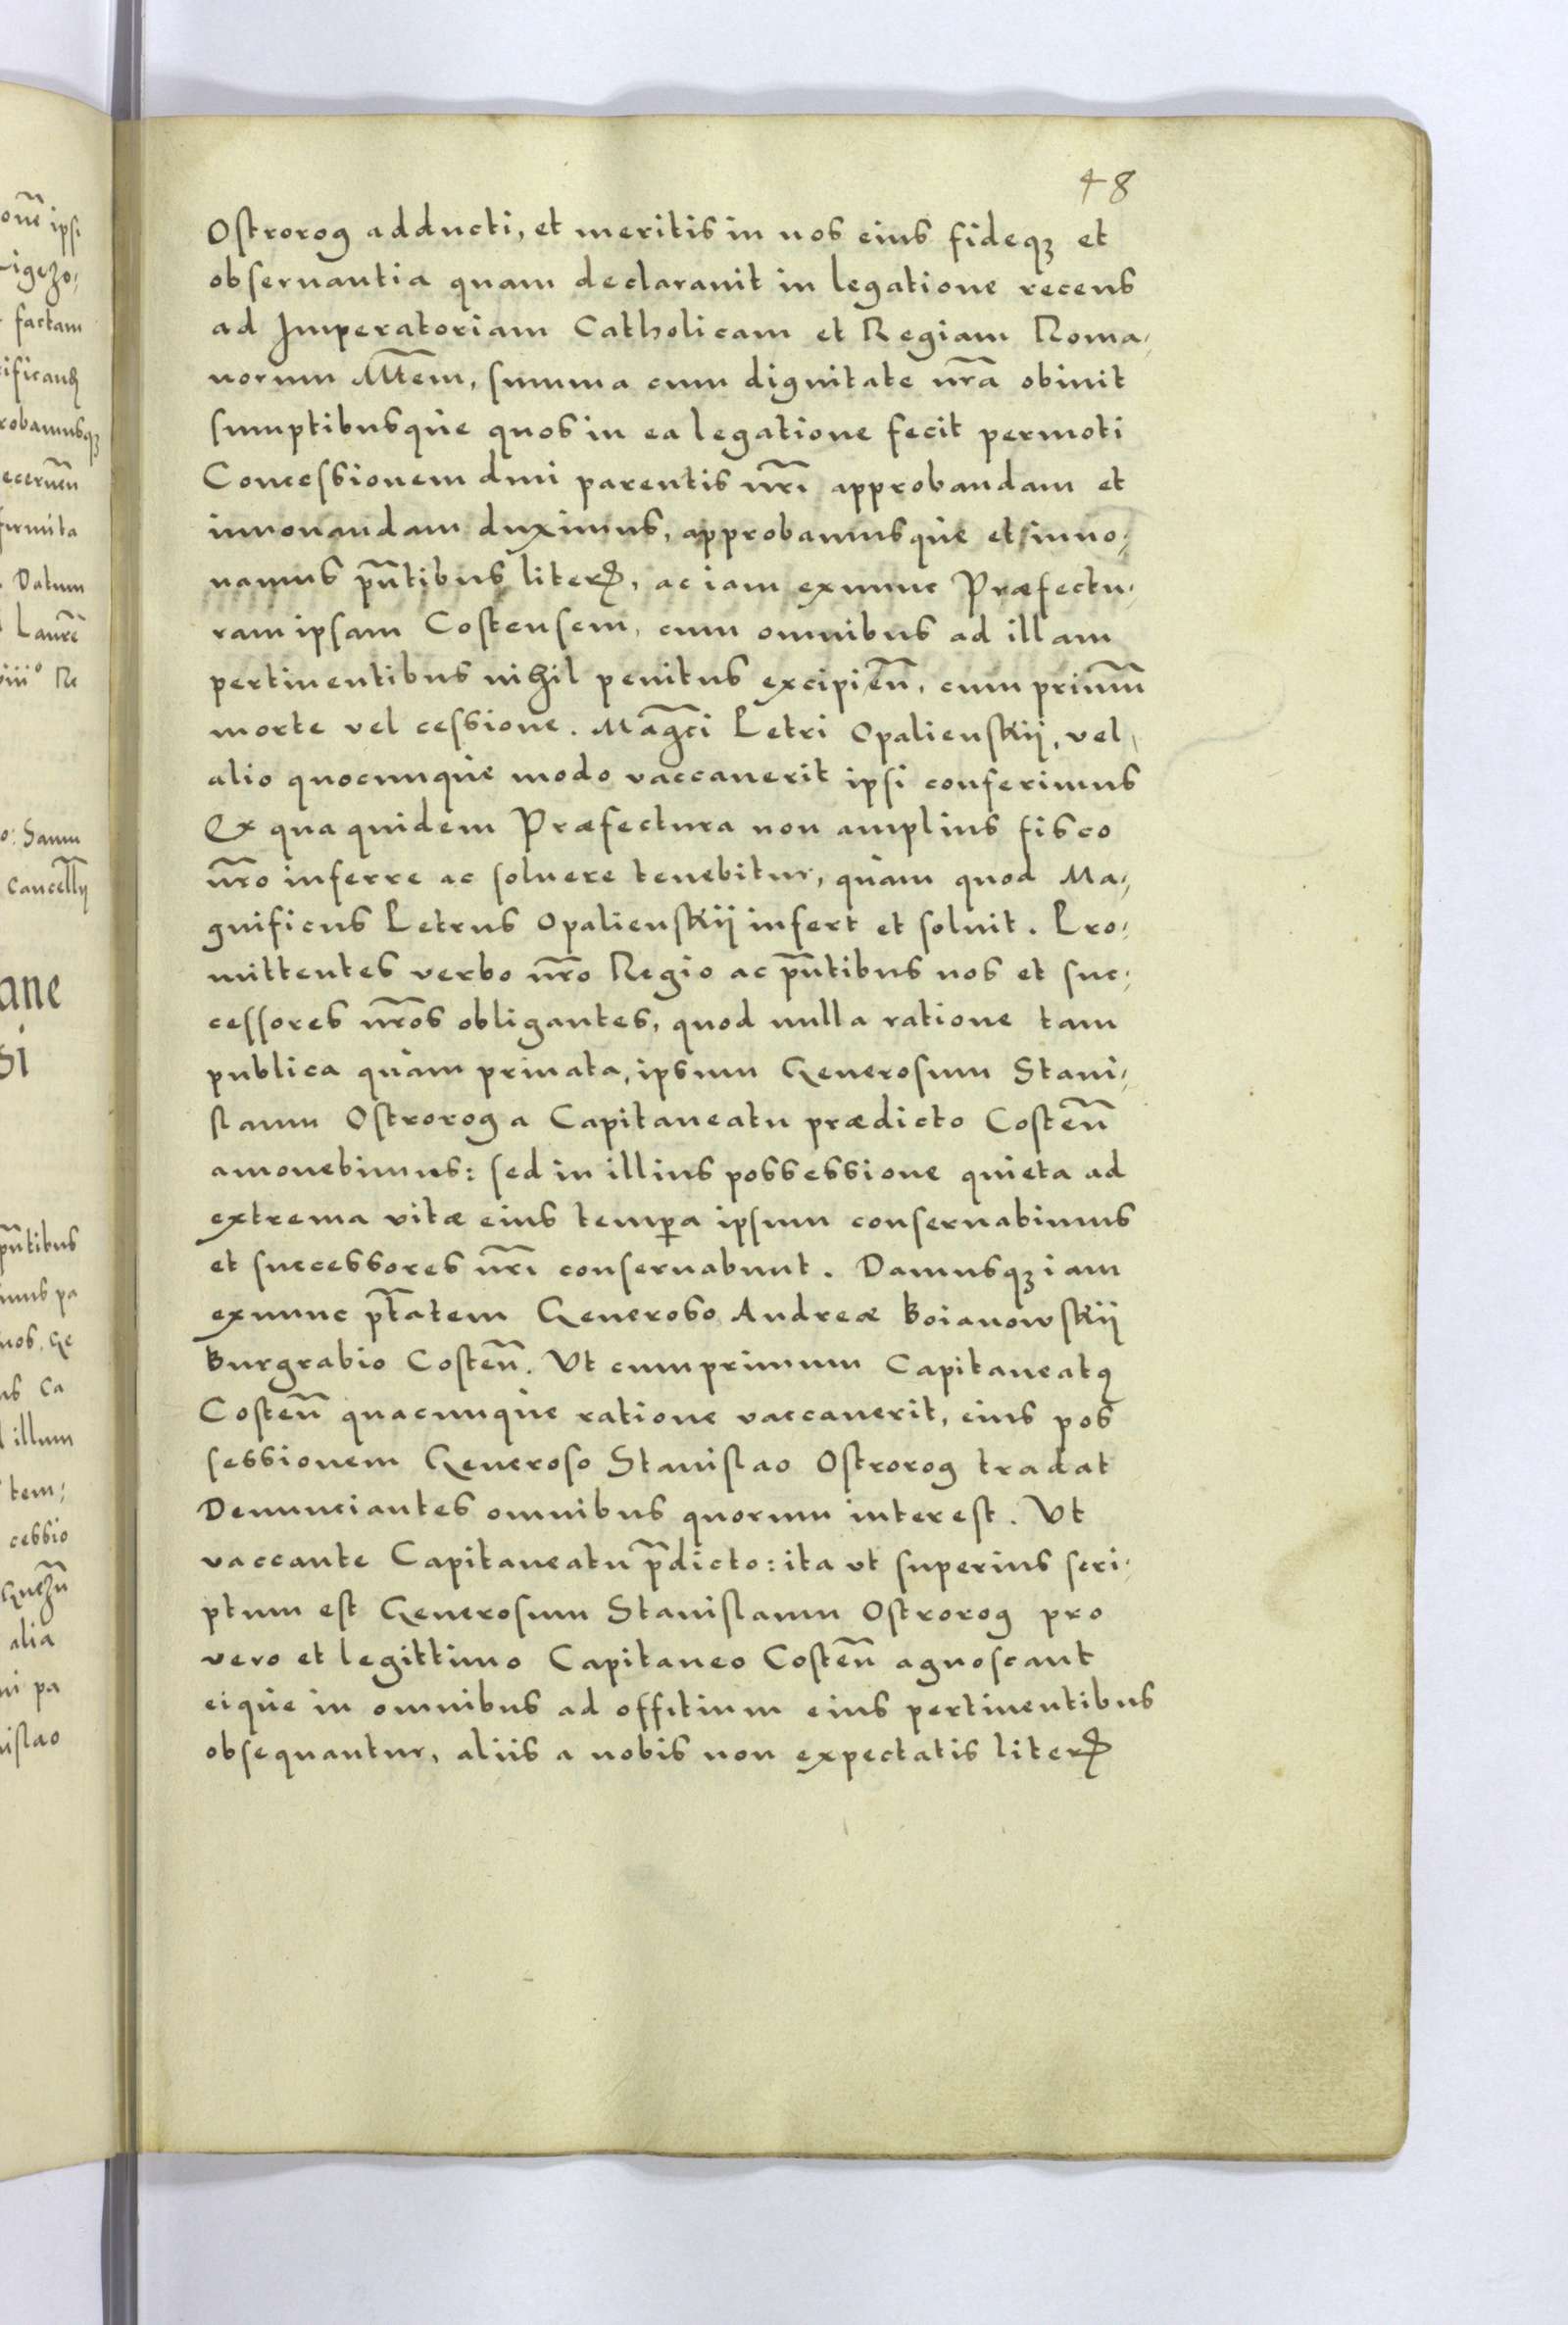 48
Ostrorog adducti, et meritis in nos eius fideqꝫ et
obseruantia quam declarauit in legatione recens
ad Imperatoriam Catholicam et Regiam Roma,
norum Mtem̃, summa cum dignitate nr̃a obiuit
sumptibusque quos in ea legatione fecit permoti
Concessionem dmi parentis nr̃i approbandam et
innouandam duximus, approbamusque et inno,
uamus pñtibus literꝭ, ac iam exnunc Præfectu,
ram ipsam Costensem, cum omnibus ad illam
pertinentibus nihil penitus excipień, cum primum
morte vel cessione. Magci Petri Opalienskij, vel
alio quocunque modo vaccauerit ipsi conferimus
Ex qua quidem Præfectura non amplius fisco
nr̃o inferre ac soluere tenebitur, quàm quod Ma,
gnificus Petrus Opalienskij infert et soluit. Pro,
mittentes verbo nr̃o Regio ac pñtibus nos et suc,
cessores nr̃os obligantes, quod nulla ratione tam
publica quàm priuata, ipsum Generosum Stani,
slaum Ostrorog a Capitaneatu prædicto Costeñ
amouebimus: sed in illius possessione quieta ad
extrema vitæ eius tempꝑa ipsum conseruabimus
et successores nr̃i conseruabunt. Damusqꝫ iam
exnunc ptãtem Generoso Andreæ Boianowskij
Burgrabio Costeñ. Vt cumprimum Capitaneatꝰ
Costeñ quacunque ratione vaccauerit, eius pos
sessionem Generoso Stanislao Ostrorog tradat
Denunciantes omnibus quorum interest. Vt
vaccante Capitaneatu p̃dicto: ita vt superius scri,
ptum est Generosum Stanislaum Ostrorog pro
vero et legittimo Capitaneo Costeñ agnoscant
eique in omnibus ad offitium eius pertinentibus
obsequantur, aliis a nobis non expectatis literꝭ